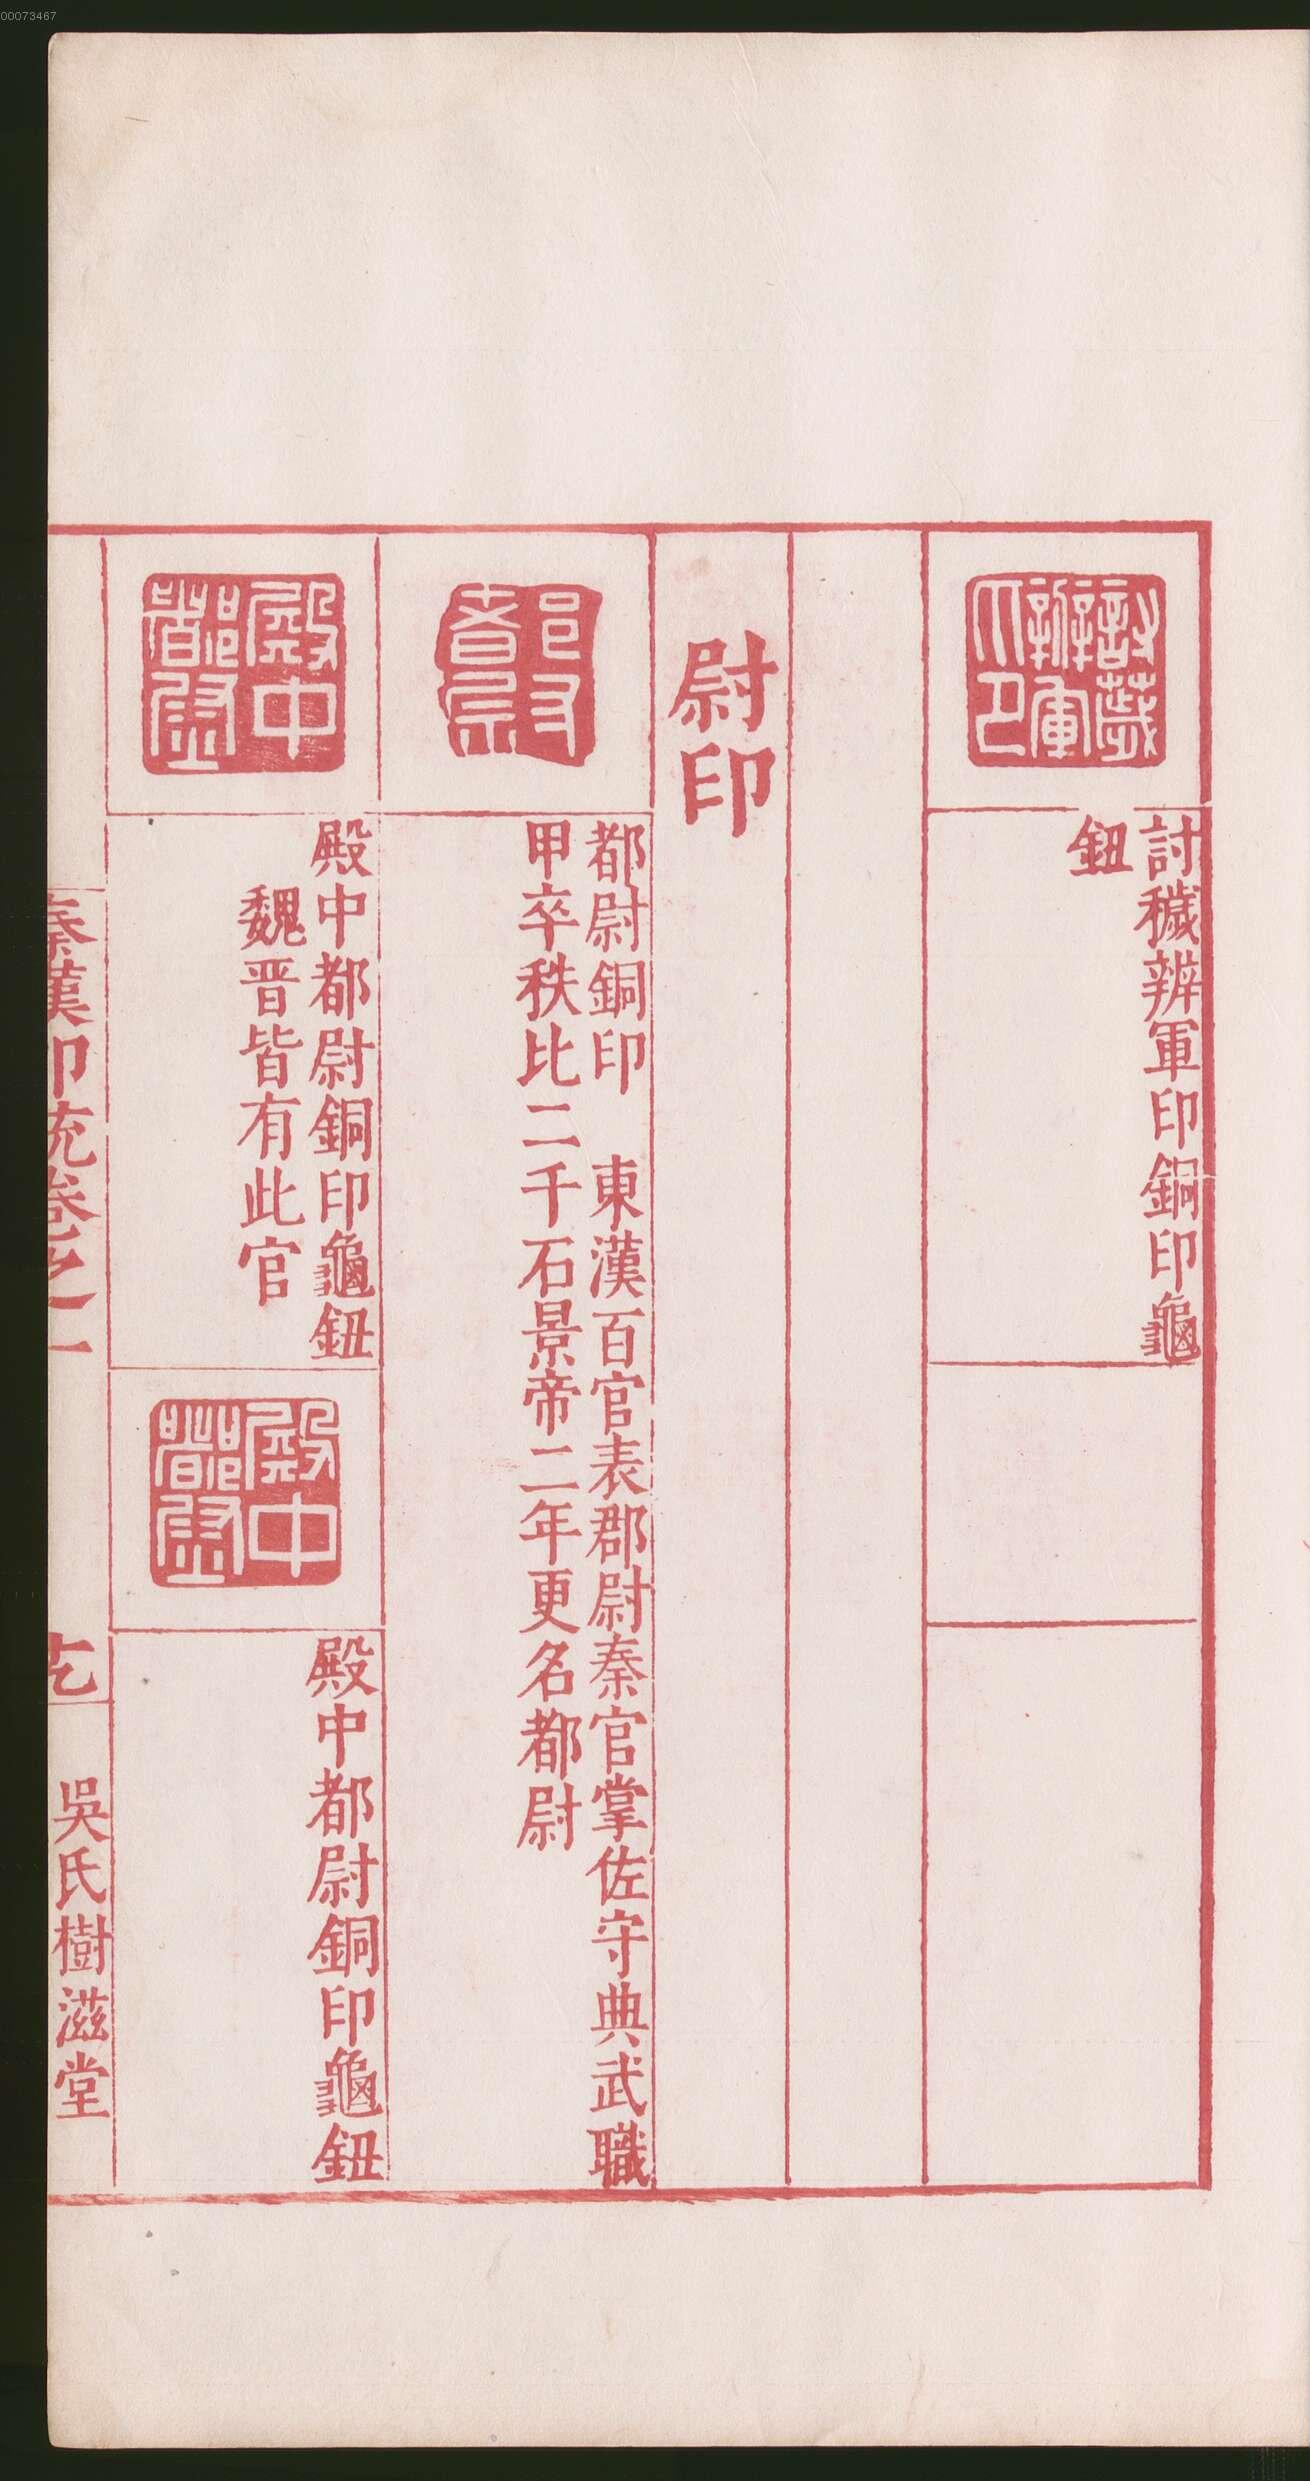 00073467
討穢辨軍印銅印龜
鈕
尉印
都尉銅印 東漢百官表郡尉秦官掌佐守典武職
甲卒秩比二千石景帝二年更名都尉
殿中都尉
殿中都尉銅印龜鈕
魏晋皆有此官
殿中都尉
殿中都尉銅印龜鈕
秦漢印統卷之一
吳氏樹滋堂